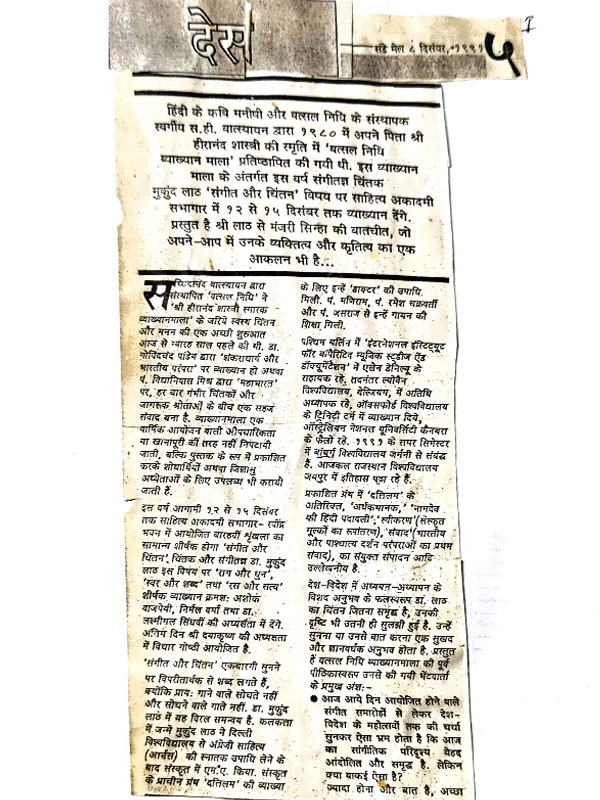 देस
संडे मेल ८ दिसंबर, १९९१
५
हिंदी के कवि मनीषी और वत्सल निधि के संस्थापक
स्वर्गीय स.ही. वात्स्यायन द्वारा १९८० में अपने पिता श्री
हीरानंद शास्त्री की स्मृति में 'वत्सल निधि
व्याख्यान माला' प्रतिष्ठापित की गयी थी. इस व्याख्यान
माला के अंतर्गत इस वर्ष संगीतज्ञ चिंतक
मुकुंद लाठ 'संगीत और चिंतन' विषय पर साहित्य अकादमी
सभागार में १२ से १५ दिसंबर तक व्याख्यान देंगे.
प्रस्तुत है श्री लाठ से मंजरी सिन्हा की बातचीत, जो
अपने-आप में उनके व्यक्तित्व और कृतित्व का एक
आकलन भी है...
सच्चिदानंद वात्स्यायन द्वारा
संस्थापित 'वत्सल निधि' ने
'श्री हीरानंद शास्त्री स्मारक
व्याख्यानमाला' के जरिये स्वस्थ चिंतन
और मनन की एक अच्छी शुरुआत
आज से ग्यारह साल पहले की थी. डा.
गोविंदचंद पांडेय द्वारा 'शंकराचार्य और
भारतीय परंपरा' पर व्याख्यान हो अथवा
पं. विद्यानिवास मिश्र द्वारा 'महाभारत'
पर, हर बार गंभीर चिंतकों और
जागरूक श्रोताओं के बीच एक सहज
संवाद बना है. व्याख्यानमाला एक
वार्षिक आयोजन वाली औपचारिकता
या खानापूरी की तरह नहीं निपटायी
जाती, बल्कि पुस्तक के रूप में प्रकाशित
करके शोधार्थियों अथवा जिज्ञासु
अध्येताओं के लिए उपलब्ध भी करायी
जाती है.
इस वर्ष आगामी १२ से १५ दिसंबर
तक साहित्य अकादमी सभागार- रवींद्र
भवन में आयोजित बारहवीं शृंखला का
सामान्य शीर्षक होगा 'संगीत और
चिंतन', चिंतक और संगीतज्ञ डा. मुकुंद
लाठ इस विषय पर 'राग और धुन',
'स्वर और शब्द' तथा 'रस और सत्य'
शीर्षक व्याख्यान क्रमश: अशोक
वाजपेयी, निर्मल वर्मा तथा डा.
लक्ष्मीमल सिंघवी की अध्यक्षता में देंगे.
अंतिम दिन श्री दयाकृष्ण की अध्यक्षता
में विचार गोष्ठी आयोजित है.
'संगीत और चिंतन' एकबारगी सुनने
पर विपरीतार्थक से शब्द लगते हैं,
क्योंकि प्राय: गाने वाले सोचते नहीं
और सोचने वाले गाते नहीं. डा. मुकुंद
लाठ में यह विरल समन्वय है. कलकत्ता
में जन्मे मुकुंद लाठ ने दिल्ली
विश्वविद्यालय से अंग्रेजी साहित्य
(आनर्स) की स्नातक उपाधि लेने के
बाद संस्कृत में एम.ए. किया. संस्कृत
के प्राचीन ग्रंथ 'दत्तिलम' की व्याख्या
के लिए इन्हें 'डाक्टर' की उपाधि
मिली. पं. मणिराम, पं. रमेश चक्रवर्ती
और पं. जसराज से इन्हें गायन की
शिक्षा मिली.
पश्चिम बर्लिन में 'इंटरनेशनल इंस्टिट्यूट
फॉर कंपैरिटिव म्यूजिक स्टडीज ऐंड
डॉक्यूमेंटेशन' में एलेन डेनिल्यू के
सहायक रहे, तदनंतर ल्योवैन
विश्वविद्यालय, बेल्जियम, में अतिथि
अध्यापक रहे, ऑक्सफोर्ड विश्वविद्यालय
के ट्रिनिटी टर्म में व्याख्यान दिये,
ऑस्ट्रेलियन नेशनल यूनिवर्सिटी कैनबरा
के फैलो रहे. १९९१ के समर सिमेस्टर
में बांबुर्ग विश्वविद्यालय जर्मनी से संबंद्ध
हैं. आजकल राजस्थान विश्वविद्यालय
जयपुर में इतिहास पढ़ा रहे हैं.
प्रकाशित ग्रंथ में 'दत्तिलम' के
अतिरिक्त, 'अर्धकथानक,' 'नामदेव
की हिंदी पदावली', 'स्वीकरण' (संस्कृत
मूल्कों का रूपांतरण), 'संवाद' (भारतीय
और पाश्चात्य दर्शन परंपराओं का प्रथम
संवाद), का संयुक्त संपादन आदि
उल्लेखनीय है.
देश-विदेश में अध्ययन-अध्यापन के
विशद अनुभव के फलस्वरूप डा. लाठ
का चिंतन जितना समृद्ध है, उनकी
दृष्टि भी उतनी ही सुलझी हुई है. उन्हें
सुनना या उनसे बात करना एक सुखद
और ज्ञानवर्धक अनुभव होता है. प्रस्तुत
हैं वत्सल निधि व्याख्यानमाला की पूर्व
पीठिकास्वरूप उनसे की गयी भेंटवार्ता
के प्रमुख अंश:-
● आज आये दिन आयोजित होने वाले
संगीत समारोहों से लेकर देश-
विदेश के महोत्सवों तक की चर्चा
सुनकर ऐसा भ्रम होता है कि आज
का सांगीतिक परिदृश्य बेहद
आंदोलित और समृद्ध है. लेकिन
क्या वाकई ऐसा है?
ज्यादा होना और बात है, अच्छा